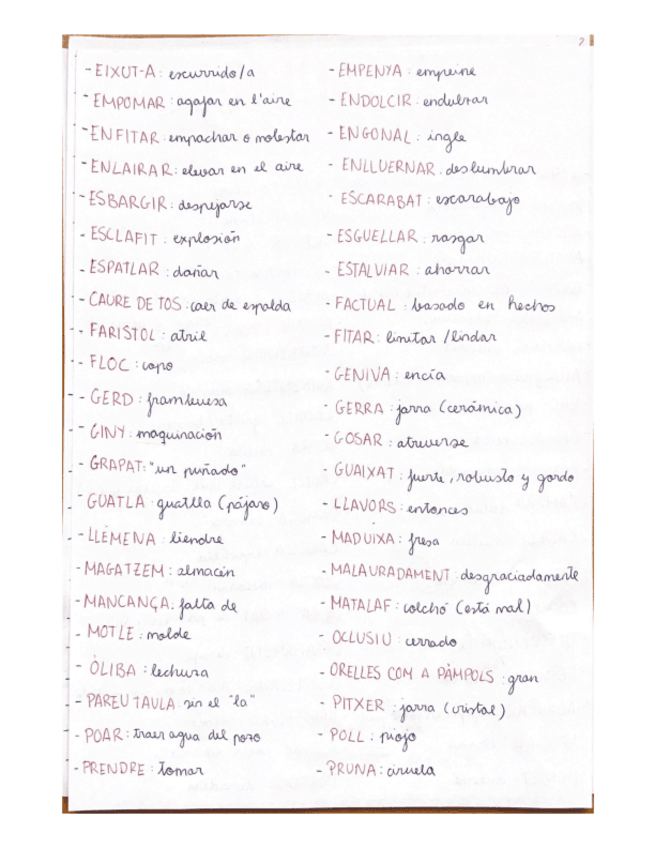 2
- EIXUT-A : escurrido/a
- EMPOMAR : agafar en l'aire
- ENFITAR : empachar o molestar
- ENLAIRAR : elevar en el aire
- ESBARGIR : despejarse
- ESCLAFIT : explosión
- ESPATLAR : dañar
- CAURE DE TOS : caer de espalda
- FARISTOL : atril
- FLOC : copo
- GERD : frambuesa
- GINY : maquinación
- GRAPAT : "un puñado"
- GUATLA : guatlla (pájaro)
- LLÈMENA : liendre
- MAGATZEM : almacén
- MANCANÇA : falta de
- MOTLE : molde
- ÒLIBA : lechuza
- PAREU TAULA : sin el "la"
- POAR : traer agua del pozo
- PRENDRE : tomar
- EMPENYA : empeine
- ENDOLCIR : endulzar
- ENGONAL : ingle
- ENLLUERNAR : deslumbrar
- ESCARABAT : escarabajo
- ESGUELLAR : rasgar
- ESTALVIAR : ahorrar
- FACTUAL : basado en hechos
- FITAR : limitar / lindar
- GENIVA : encía
- GERRA : jarra (cerámica)
- GOSAR : atreverse
- GUAIXAT : fuerte, robusto y gordo
- LLAVORS : entonces
- MADUIXA : fresa
- MALAURADAMENT : desgraciadamente
- MATALAF : colchó (está mal)
- OCLUSIU : cerrado
- ORELLES COM A PÀMPOLS : gran
- PITXER : jarra (cristal)
- POLL : piojo
- PRUNA : ciruela